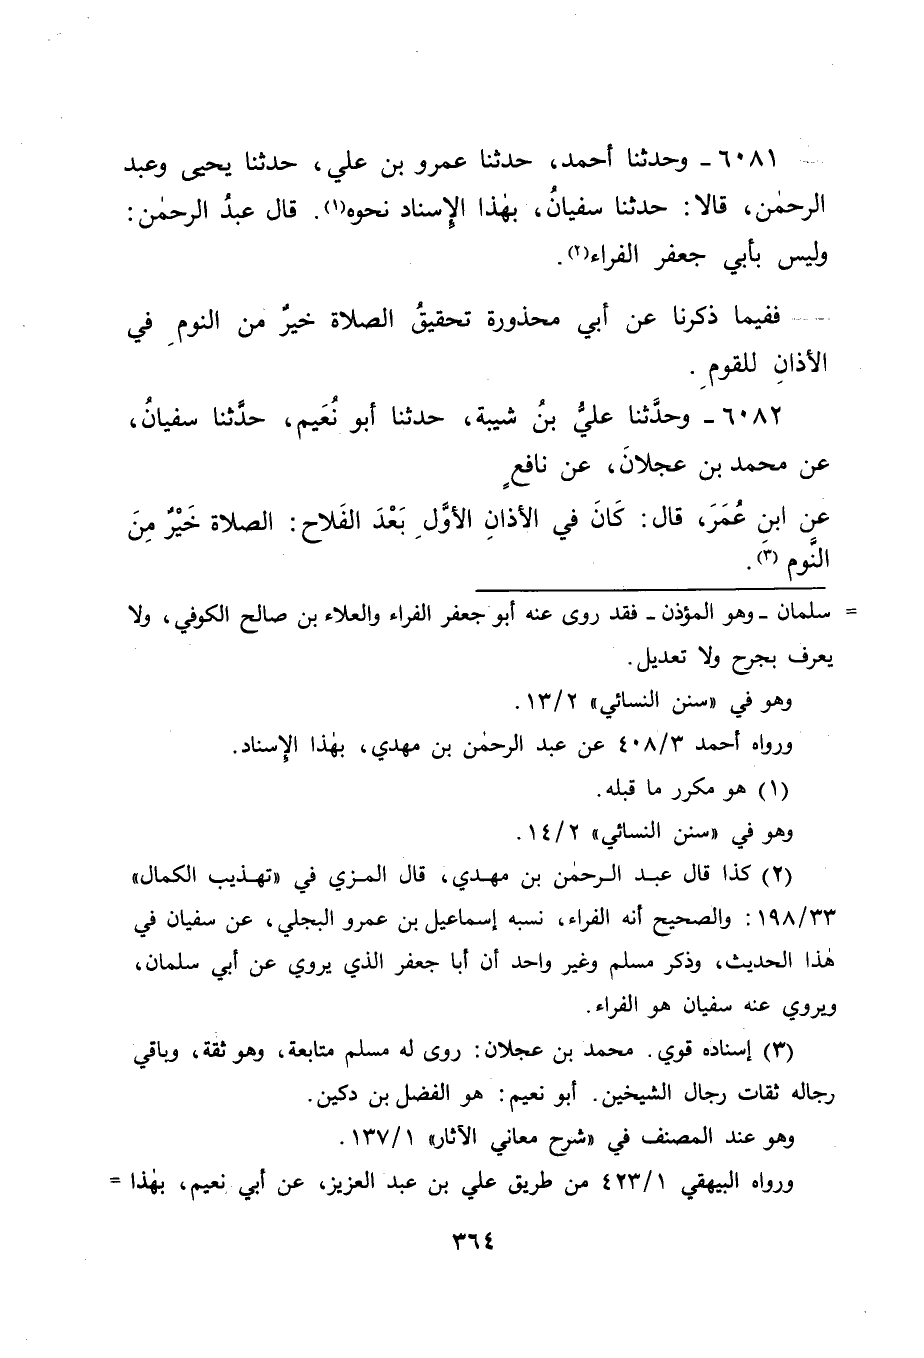 ٦٠٨١ - وحدثنا أحمد، حدثنا عمرو بن علي، حدثنا يحيى وعبد
الرحمٰن، قالا: حدثنا سفيانُ، بهٰذا الإِسناد نحوه(١). قال عبدُ الرحمٰن:
وليس بأبي جعفر الفراء(٢).
ففيما ذكرنا عن أبي محذورة تحقيقُ الصلاة خيرٌ من النومِ في
الأذانِ للقومِ.
٦٠٨٢ - وحدَّثنا عليُّ بنُ شيبة، حدثنا أبو نُعَيم، حدَّثنا سفيانُ،
عن محمد بن عجلانَ، عن نافعٍ
عن ابنِ عُمَرَ، قال: كَانَ في الأذانِ الأوَّلِ بَعْدَ الفَلاح: الصلاة خَيْرٌ مِنَ
النَّومِ(٣).
= سلمان - وهو المؤذن - فقد روى عنه أبو جعفر الفراء والعلاء بن صالح الكوفي، ولا
يعرف بجرح ولا تعديل.
وهو في «سنن النسائي» ١٣/٢.
ورواه أحمد ٤٠٨/٣ عن عبد الرحمٰن بن مهدي، بهٰذا الإِسناد.
(١) هو مكرر ما قبله.
وهو في «سنن النسائي» ١٤/٢.
(٢) كذا قال عبد الرحمٰن بن مهدي، قال المزي في «تهذيب الكمال»
١٩٨/٣٣: والصحيح أنه الفراء، نسبه إسماعيل بن عمرو البجلي، عن سفيان في
هٰذا الحديث، وذكر مسلم وغير واحد أن أبا جعفر الذي يروي عن أبي سلمان،
ويروي عنه سفيان هو الفراء.
(٣) إسناده قوي. محمد بن عجلان: روى له مسلم متابعة، وهو ثقة، وباقي
رجاله ثقات رجال الشيخين. أبو نعيم: هو الفضل بن دكين.
وهو عند المصنف في «شرح معاني الآثار» ١٣٧/١.
ورواه البيهقي ٤٢٣/١ من طريق علي بن عبد العزيز، عن أبي نعيم، بهٰذا =
٣٦٤